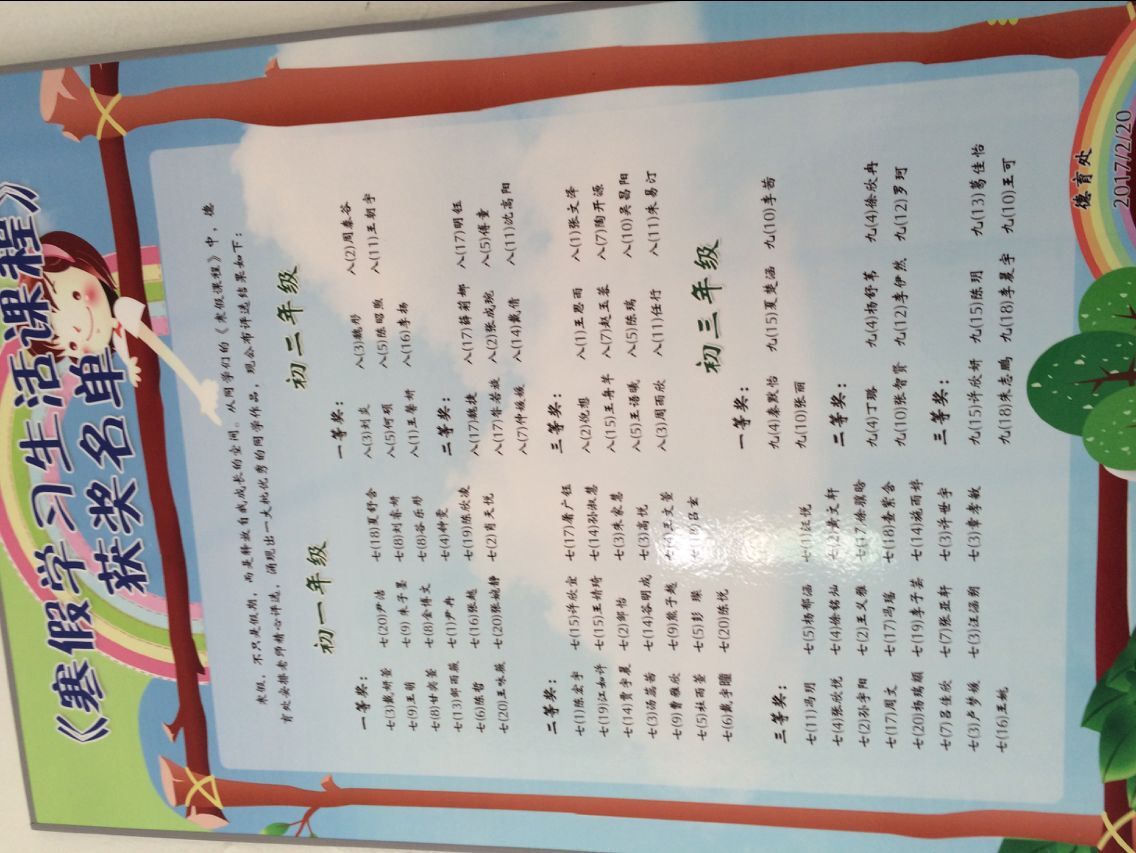 《寒假学习生活课程》
获奖名单
寒假，不只是假期，而是释放自我成长的空间。从同学们的《寒假课程》中，德
育处安排老师精心评选，涌现出一大批优秀的同学作品，现公布评选结果如下：
初一年级
一等奖：
七(3)戴妍萱 七(20)尹洁 七(18)夏舒含
七(9)王萌 七(9)朱子墨 七(8)刘睿妍
七(8)甘奕萱 七(8)金博文 七(8)谷乐彤
七(13)郎雨薇 七(1)尹冉 七(4)种雯
七(6)陈哲 七(16)张越 七(19)陈欣凌
七(20)王咏薇 七(20)张婉静 七(2)肖天悦
二等奖：
七(1)陈宏宇 七(15)许欣宜 七(17)眷广钰
七(19)江如许 七(15)王婧琦 七(14)孙淑慧
七(14)贵宇晨 七(2)邹怡 七(3)朱家慧
七(3)汤蕊茜 七(14)谷明成 七(3)高悦
七(9)曹雅欣 七(9)熊子越 七(4)王文萱
七(5)杜雨萱 七(5)彭璨 吕玄
七(6)戴宇瞳 七(20)陈悦
三等奖：
七(11)冯玥 七(5)杨郁涵 七(1)汪悦
七(4)张欣悦 七(4)徐铭灿 七(2)黄文轩
七(2)孙宇阳 七(2)王义雅 七(17)徐颢晗
七(17)周文 七(17)冯瑶 七(18)查紫含
七(20)杨瑞颐 七(19)李子芸 七(14)施雨婷
七(7)吕佳欣 七(7)张亚轩 七(3)许世宇
七(3)卢梦媛 七(3)汪涵朔 七(3)章孝敏
七(16)王姚
初二年级
一等奖：
八(3)刘炎 八(3)魏彤 八(2)周泰谷
八(5)何硕 八(5)陈昭煦 八(11)王朝宇
八(1)王馨妍 八(16)李扬
二等奖：
八(17)魏捷 八(17)薛莉娜 八(17)明钰
八(17)昝若旋 八(2)张成琬 八(5)傅童
八(7)仲媛媛 八(14)戴倩 八(11)沈高阳
三等奖：
八(2)倪想 八(1)王思雨 八(1)张文泽
八(15)王冉芊 八(7)赵玉蓉 八(7)陶开源
八(5)王语曦 八(5)陈瑞 八(10)吴昌阳
八(3)周雨欣 八(11)任行 八(11)朱易汀
初三年级
一等奖：
九(4)秦默怡 九(15)夏楚涵 九(10)李茜
九(10)张丽
二等奖：
九(4)丁璐 九(4)杨舒苇 九(4)徐欣冉
九(10)张智贤 九(12)李伊然 九(12)罗珂
三等奖：
九(15)许欣妍 九(15)陈玥 九(13)葛佳怡
九(18)朱志鹏 九(18)李晨宇 九(10)王可
德育处
2017/2/20